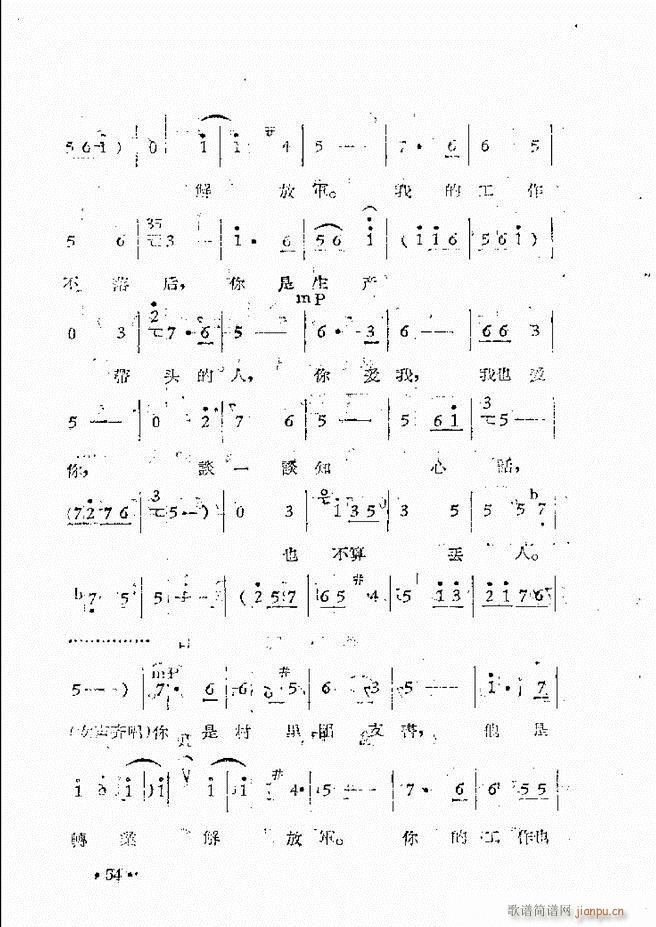 5 6 i ) | 0 i | i #4 | 5 — | 7· 6 | 6 5 |
解 放 軍。 我 的 工 作
5 6 | 35 3 — | i· 6 | 56 i | ( i i 6 | 56 i ) |
不 落 后， 你 是 生 产
mp
0 3 | 2 7· 6 | 5 — | 6· 3 | 6 — | 66 3 |
带 头 的 人， 你 爱 我， 我 也 爱
5 — | 0 2 | 7 6 | 5 — | 5 6i | 3 5 — |
你， 談 一 談 知 心 話，
( 7276 | 3 5 — ) | 0 3 | i 35 | 3 5 | 5 5 b7 |
也 不 算 丢 人。
b7 5 | 5 — | ( 257 | 65 #4 | 5 i3 | 2i76 |
5 — ) | mP 7· 6 | 6 #5 | 6 35 | 5 — | i· 7 |
(女声齐唱) 你 是 村 里 团 支 書， 他 是
i i | i ) i | i i | i #4· | 5 — | 7· 6 | 6 55 |
轉 業 解 放 軍。 你 的 工 作 也
· 54 ·
歌谱简谱网 jianpu.cn